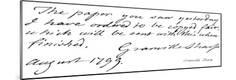 The paper you saw yesterday
I have ordered to be copied fair,
which will be sent with this when
finished.
Granville Sharp
August 1799.
Granville Sharp